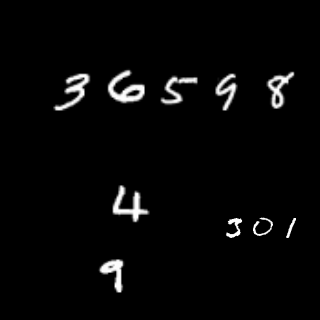 36598
4
301
9